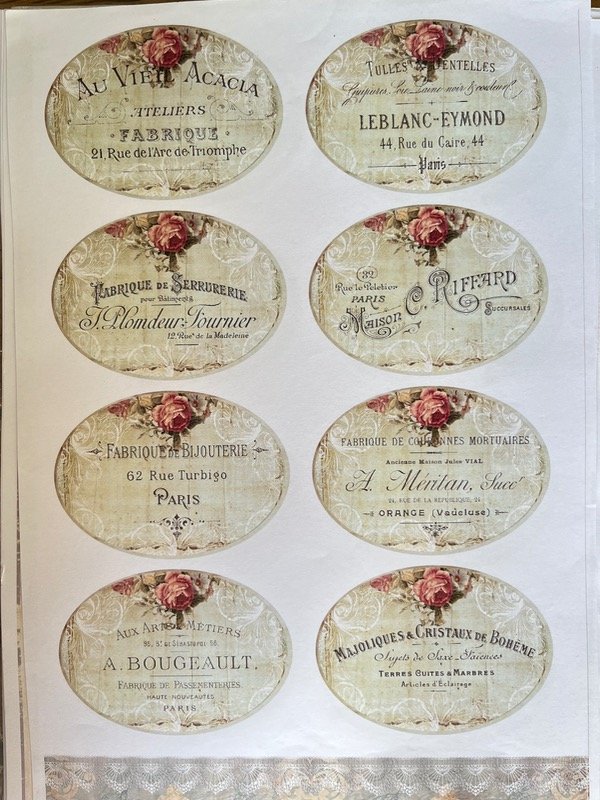 AU VIEIL ACACIA
ATELIERS
FABRIQUE
21, Rue de l'Arc de Triomphe
TULLES & DENTELLES
Guipures, Soie Laine noir & couleurs
LEBLANC-EYMOND
44, Rue du Caire, 44
Paris
FABRIQUE DE SERRURERIE
pour Bâtiments
J. Plomdeur-Fournier
12, Rue de la Madeleine
32
Rue le Peletier
PARIS
MAISON C. RIFFARD
SUCCURSALES
FABRIQUE DE BIJOUTERIE
62 Rue Turbigo
PARIS
FABRIQUE DE COURONNES MORTUAIRES
Ancienne Maison Jules VIAL
A. Méritan, Succr
24, RUE DE LA REPUBLIQUE, 24
ORANGE (Vaucluse)
AUX ARTS & METIERS
A. BOUGEAULT.
FABRIQUE DE PASSEMENTERIES.
HAUTE NOUVEAUTES
PARIS
MAJOLIQUES & CRISTAUX DE BOHÊME
Sujets de Saxe-Faïences
TERRES CUITES & MARBRES
Articles d'Éclairage